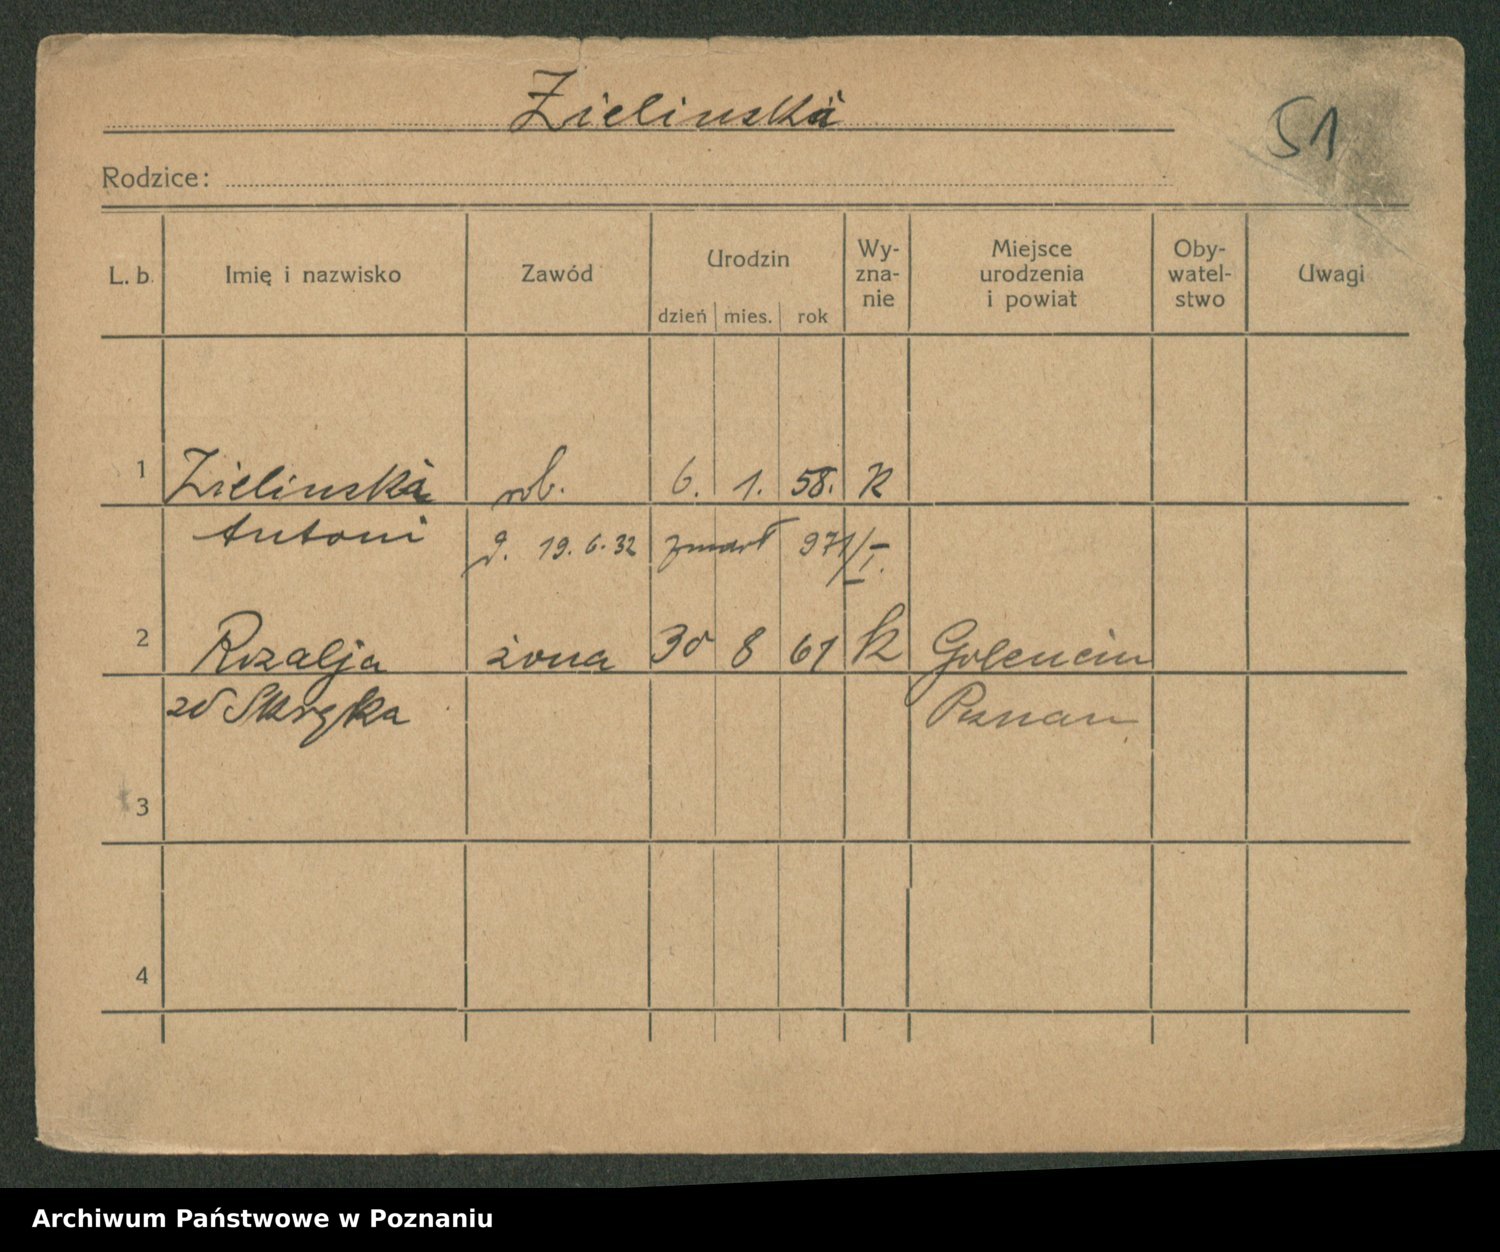 Zielinska
51
Rodzice:
L. b. Imię i nazwisko Zawód Urodzin dzień mies. rok Wy-zna-nie Miejsce urodzenia i powiat Oby-watel-stwo Uwagi
1 Zielinska rob. 6. 1. 58. K
Antoni 19. 6. 32 zmarł 971/I.
2 Rozalja żona 30 8 61 k Golencin
zd Skrzypka Poznan
3
4
Archiwum Państwowe w Poznaniu